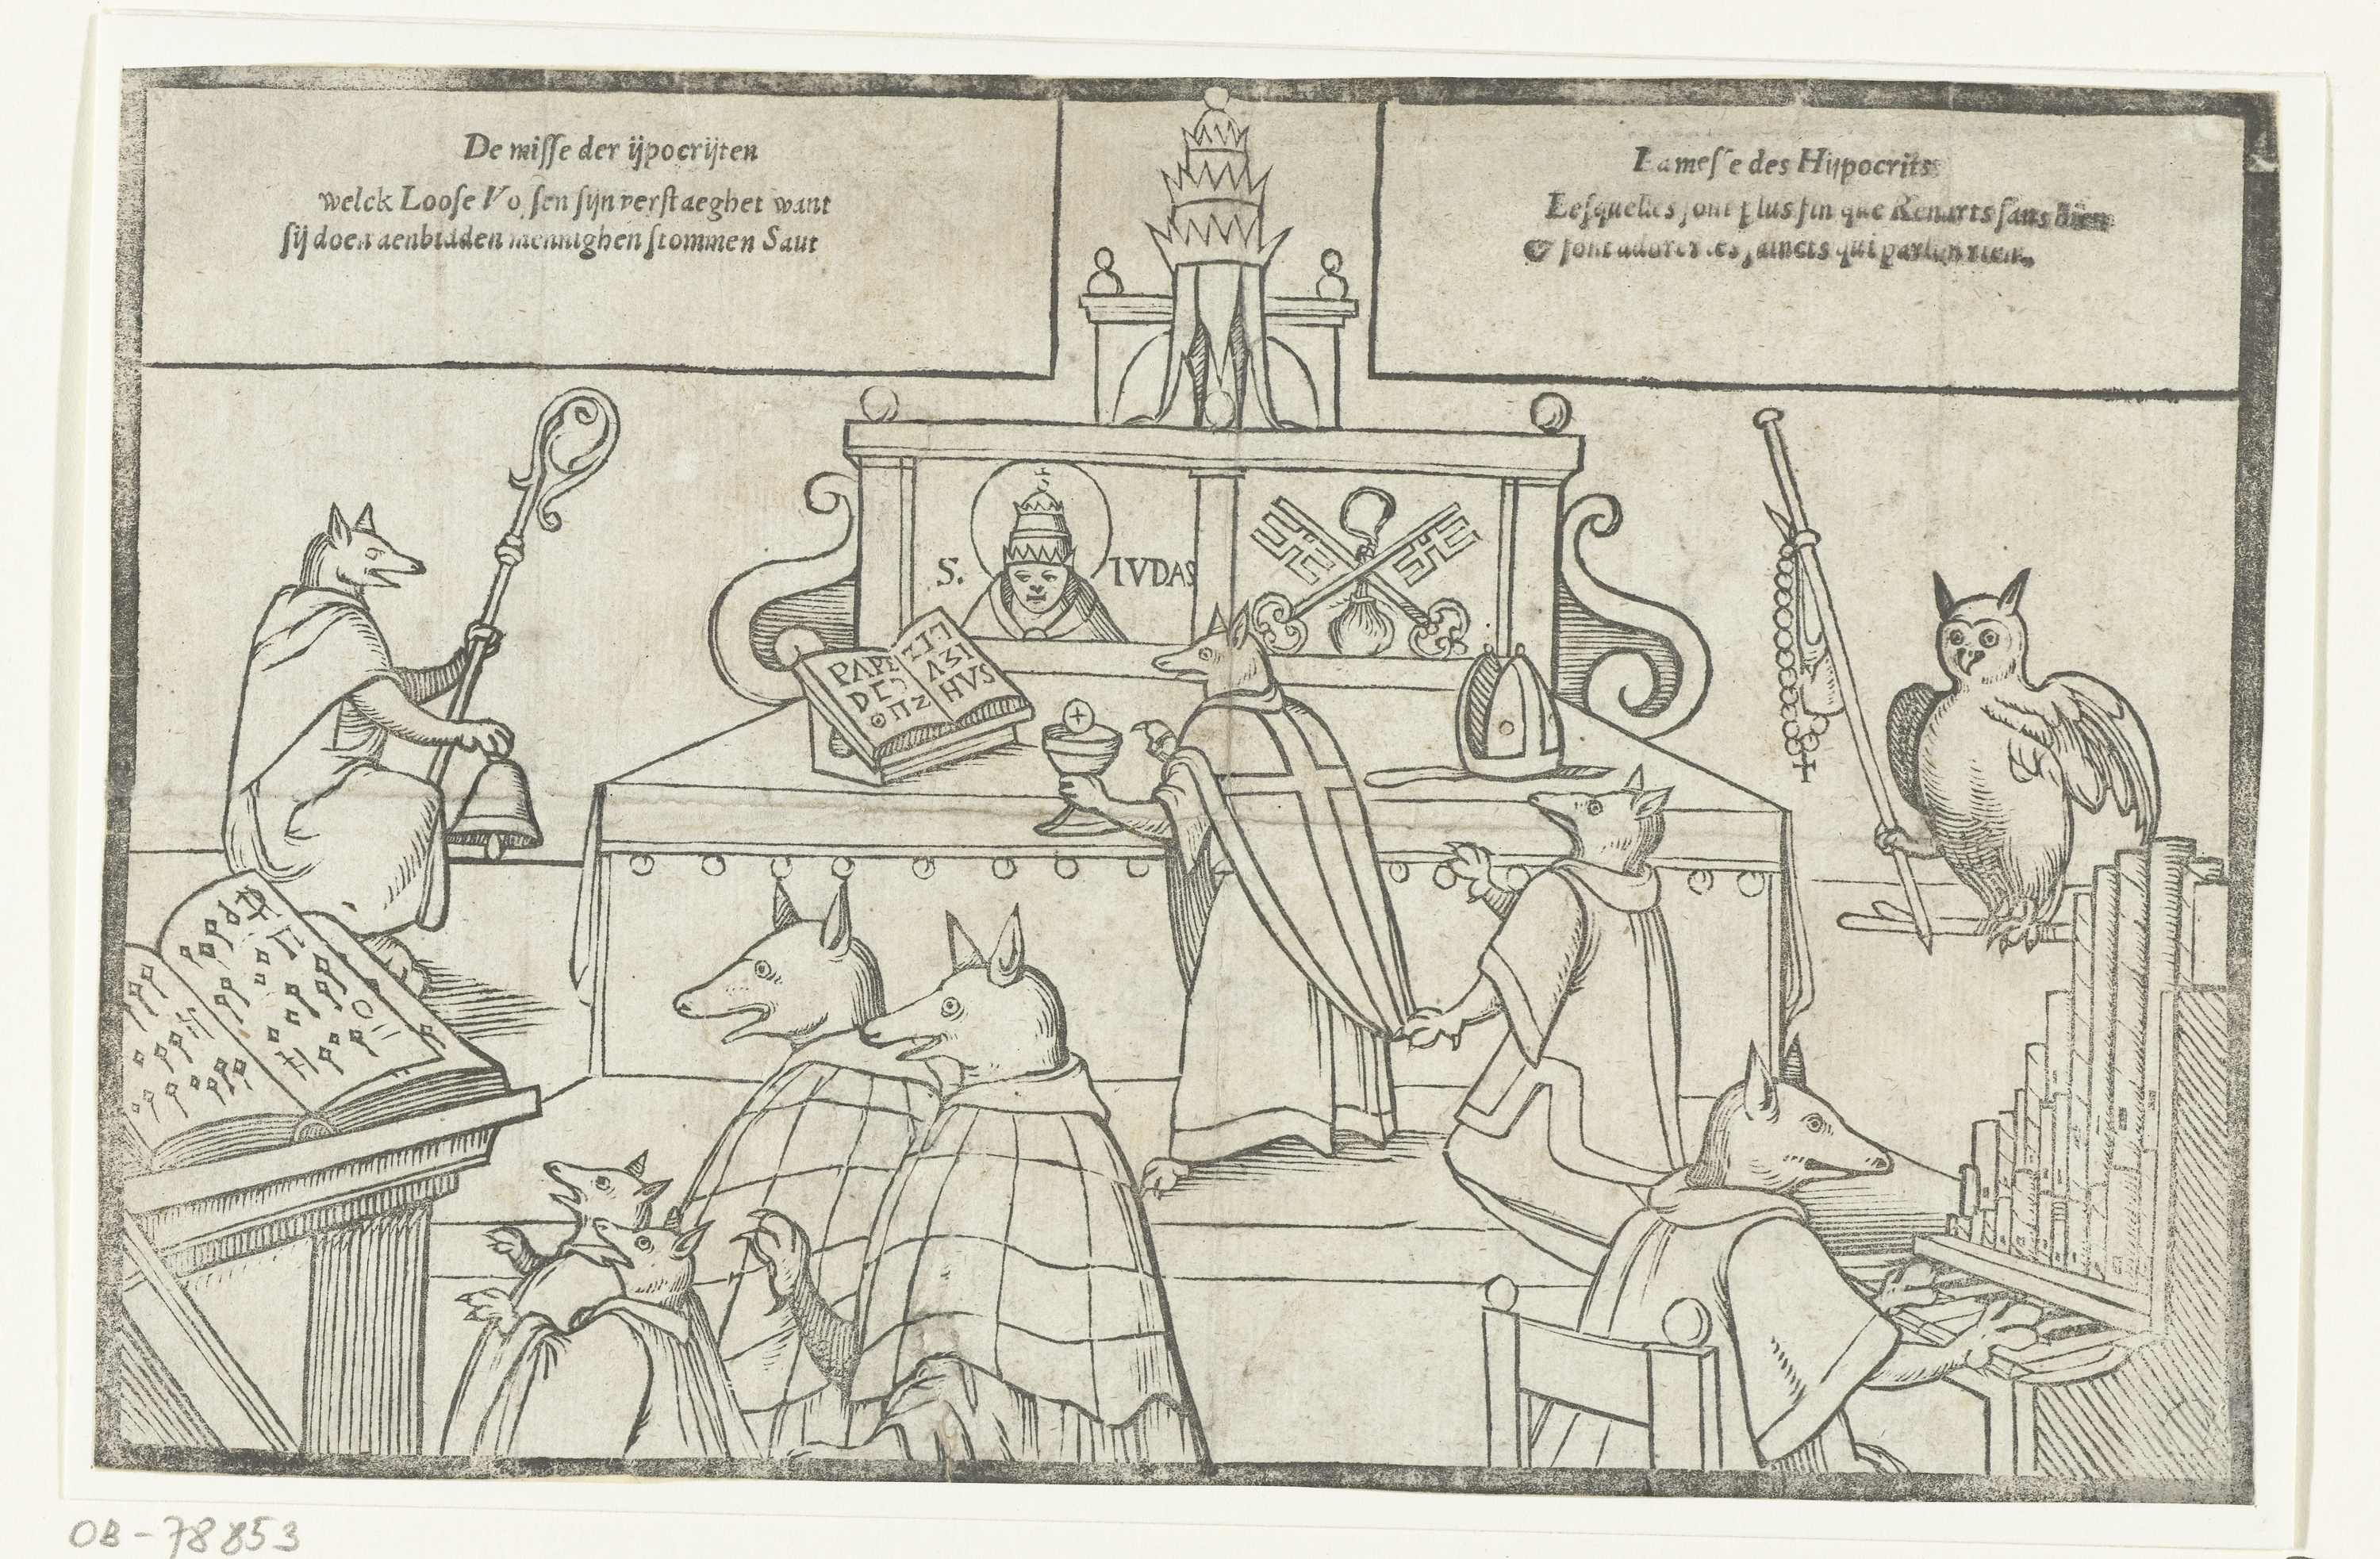 De misse der ijpocrijten
welck Loose Vossen sijn verstaeghet want
sij doen aenbidden mennighen stommen Saut
La messe des Hijpocrits
Lesquelles sont plus fin que Renarts sans bien
& font adorer les saincts qui parlen rien.
S. IVDAS
PAPE
DE
HVS
OB-78853